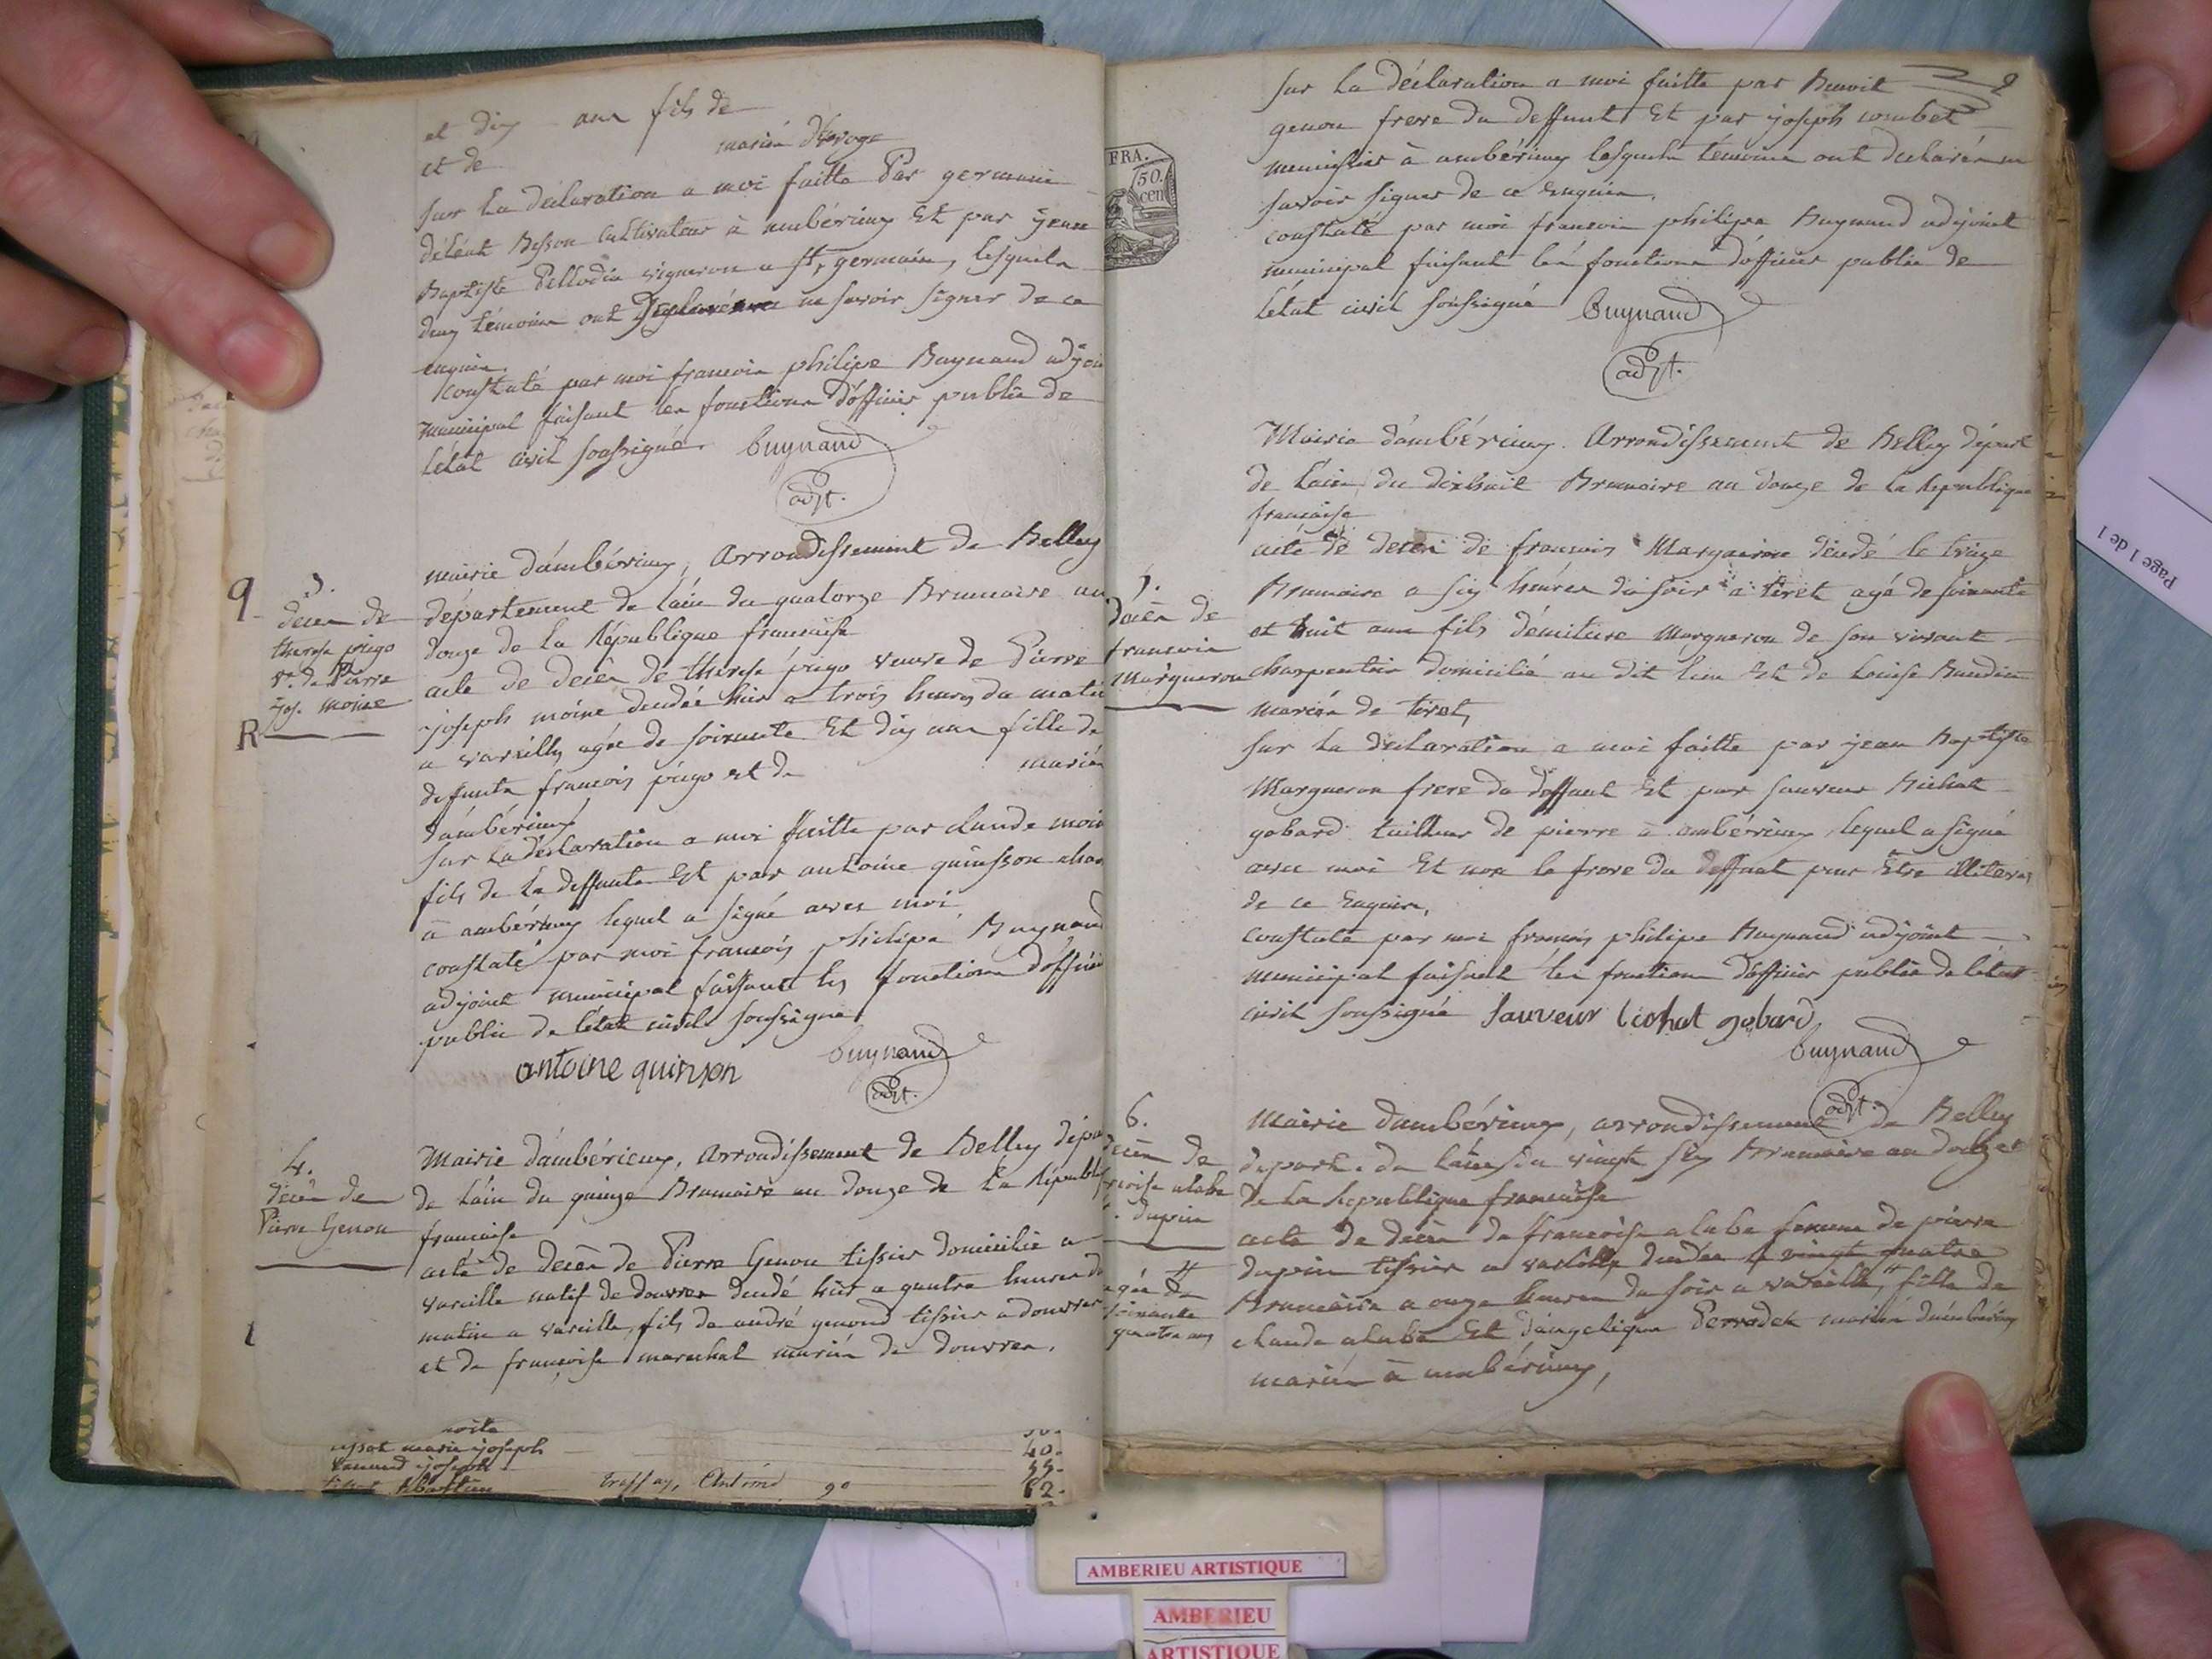 et dix ans fils de
et de mariés
sur la déclaration a moi faitte Par germain
Besson Cultivateur à ambérieux Et par jean
Baptiste vigneron a St, germain, lesquels
deux témoins ont ne savoir signer de ce
enquis.
constaté par moi francois philipe Buynand adjoin
municipal faisant les fonctions d'officier public de
létat civil soussigné. buynand
adjt.
9
3.
deces de
therese
ve. de Pierre
jos. moine
R
mairie d'ambérieux, arrondissement de Belley
département de l'ain du quatorze Brumaire an
douze de la République française
acte de decès de therese veuve de Pierre
joseph moine décédée hier a trois heures du matin
a vareille agée de soixante Et dix ans fille de
deffunts francois et de mariés
d'ambérieux
sur la déclaration a moi faitte par claude moin
fils de la deffunte Et par antoine quinsson
à ambérieux lequel a signé avec moi
constaté par moi francois philipe Buynand
adjoint municipal faisant les fonctions d'officier
public de l'état civil soussigné,
antoine quinson buynand
adjt.
4.
décès de
Pierre Genou
1
Mairie d'ambérieux, arrondissement de Belley dépa
de l'ain du quinze Brumaire an douze de la Républi
francaise
acte de decès de Pierre Genou tissier domicilié a
vareille natif de douvres décédé hier a quatre heures du
matin a vareille, fils de andré genoud tissier a douvres
et de francoise marechal mariés de douvres.
marie joseph 40.
joseph 55.
Sebastien 90 82.
2
sur la déclaration a moi faitte par Benoit
genou frere du deffunt Et par joseph combet
menuisier à ambérieux lesquels témoins ont declaré ne
savoir signer de ce enquis.
constaté par moi francois philipe Buynand adjoint
municipal faisant les fonctions d'officier public de
létat civil soussigné buynand
adjt.
FRA.
50.
cen
Mairie d'ambérieux. Arrondissement de Belley départ
de l'ain, du dixhuit Brumaire an douze de la Republique
francaise
5.
decès de
francois
Margueron
acte de deces de francois Margueron décédé le treize
Brumaire a six heures du soir à tiret agé de soixante
et huit ans fils Margueron de son vivant
charpentier domicilié au dit lieu Et de Louise Baudin
mariés de tiret,
sur la déclaration a moi faitte par jean Baptiste
Margueron frere du deffunt Et par sauveur Bichat
gobard tailleur de pierre à ambérieux, lequel a signé
avec moi Et non le frere du deffunt pour Etre illiteré
de ce Enquis,
constaté par moi francois philipe Buynand adjoint
municipal faisant les fonctions d'officier public de létat
civil soussigné Sauveur bichat gobard
buynand
adjt.
6.
decès de
coise alabe
dupin
agée de
soixante
quatre ans
Mairie d'ambérieux, arrondissement de Belley
depart. de l'ain, du vingt six Brumaire an douze
de la Republique francaise
acte de decès de francoise alabe femme de pierre
dupin tissier a vareille décédée le vingt quatre
Brumaire a onze heures du soir a vareille, fille de
claude alabe Et d'angelique Perrodet mariés d'ambérieux
mariés à ambérieux,
Page 1 de 1
AMBERIEU ARTISTIQUE
AMBERIEU
ARTISTIQUE